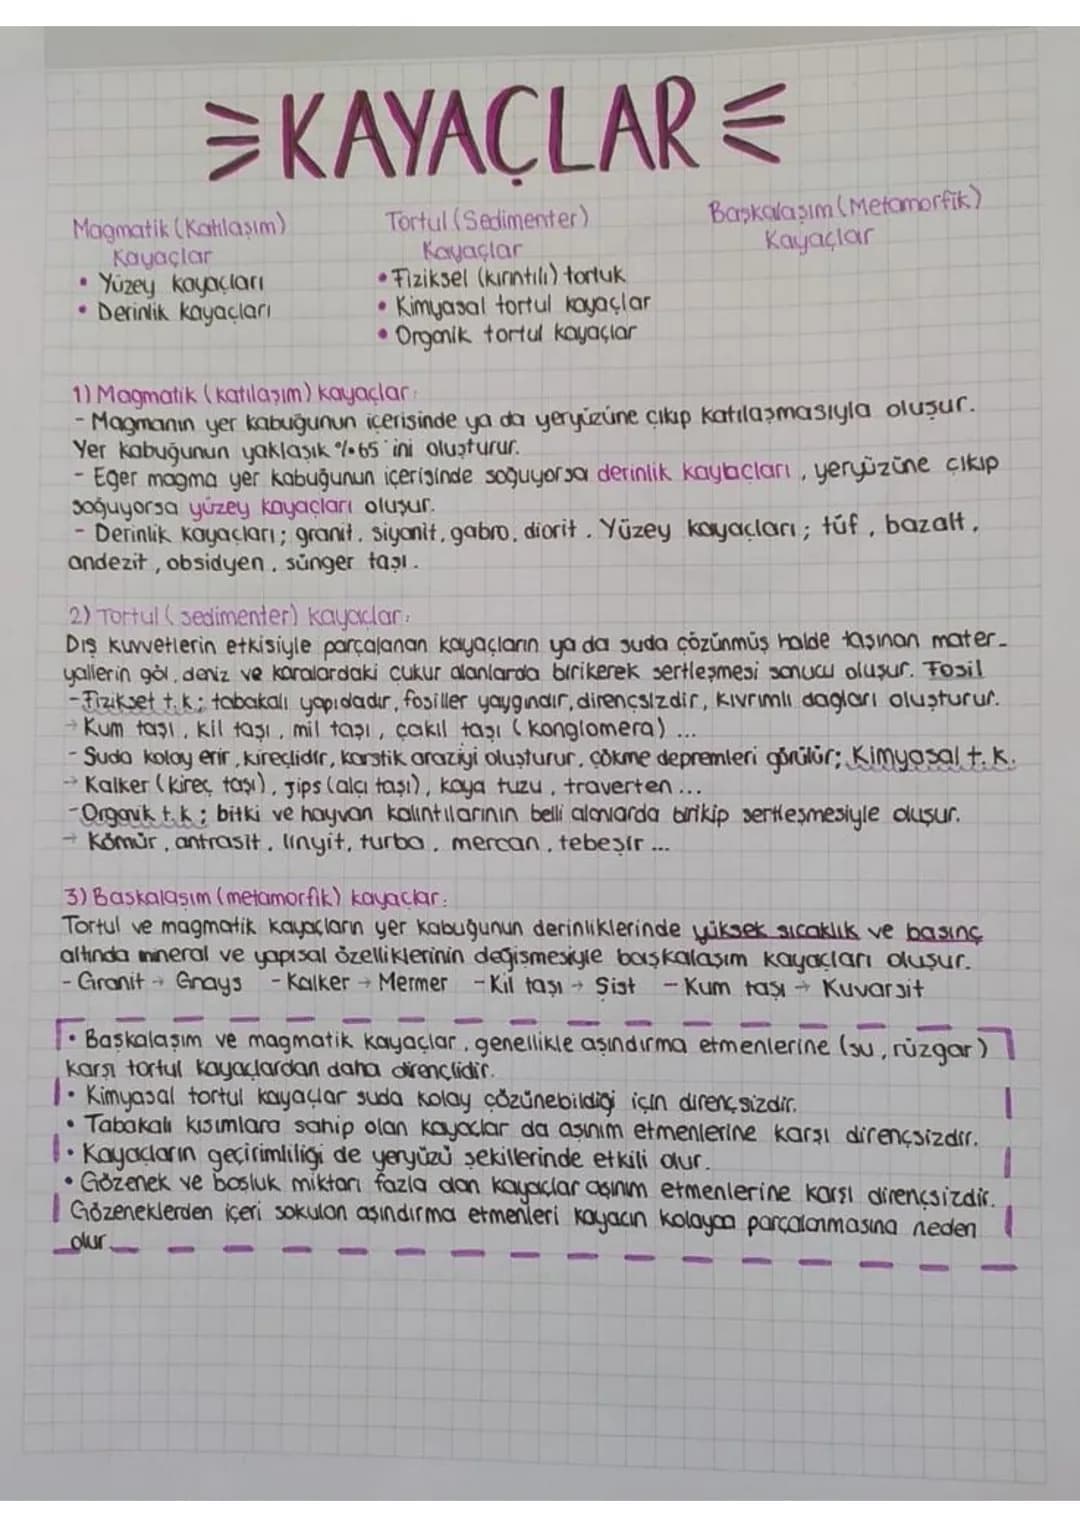 KAYAÇLAR
Magmatik (Katılaşım)
Kayaçlar
• Yüzey kayaçları
• Derinlik kayaçları
Tortul (Sedimenter)
Kayaçlar
• Fiziksel (kırıntılı) tortuk
• Kimyasal tortul kayaçlar
• Organik tortul kayaçlar
Başkalaşım (Metamorfik)
Kayaçlar
1) Magmatik (katılaşım) kayaçlar:
- Magmanın yer kabuğunun içerisinde ya da yeryüzüne çıkıp katılaşmasıyla oluşur.
Yer kabuğunun yaklaşık %65'ini oluşturur.
- Eğer magma yer kabuğunun içerisinde soğuyorsa derinlik kaybaçları, yeryüzüne çıkıp
soğuyorsa yüzey kayaçları oluşur.
- Derinlik kayaçları; granit, siyanit, gabro, diorit. Yüzey kayaçları; tüf, bazalt,
andezit, obsidyen, sünger taşı.
2) Tortul (sedimenter) kayaçlar:
Dış kuvvetlerin etkisiyle parçalanan kayaçların ya da suda çözünmüş halde taşınan mater-
yallerin göl, deniz ve karalardaki çukur alanlarda birikerek sertleşmesi sonucu oluşur. Fosil
- Fizikset t.k; tabakalı yapıdadır, fosiller yaygındır, dirençsizdir, kıvrımlı dağları oluşturur.
→ Kum taşı, kil taşı, mil taşı, çakıl taşı (konglomera) ...
- Suda kolay erir, kireçlidir, karstik araziyi oluşturur, çökme depremleri görülür; Kimyasal t. k.
→ Kalker (kireç taşı), jips (alçı taşı), kaya tuzu, traverten ...
- Organik t.k; bitki ve hayvan kalıntılarının belli alanlarda birikip sertleşmesiyle oluşur.
→ Kömür, antrasit, linyit, turba, mercan, tebeşir ...
3) Başkalaşım (metamorfik) kayaçlar:
Tortul ve magmatik kayaçların yer kabuğunun derinliklerinde yüksek sıcaklık ve basınç
altında mineral ve yapısal özelliklerinin değişmesiyle başkalaşım kayaçları oluşur.
- Granit → Gnays - Kalker → Mermer - Kil taşı → Şist - Kum taşı → Kuvarsit
• Başkalaşım ve magmatik kayaçlar, genellikle aşındırma etmenlerine (su, rüzgar)
karşı tortul kayaçlardan daha dirençlidir.
• Kimyasal tortul kayaçlar suda kolay çözünebildiği için dirençsizdir.
• Tabakalı kısımlara sahip olan kayaçlar da aşınım etmenlerine karşı dirençsizdir.
• Kayaçların geçirimliliği de yeryüzü şekillerinde etkili olur.
• Gözenek ve boşluk miktarı fazla olan kayaçlar aşınım etmenlerine karşı dirençsizdir.
Gözeneklerden içeri sokulan aşındırma etmenleri kayacın kolayca parçalanmasına neden
olur.